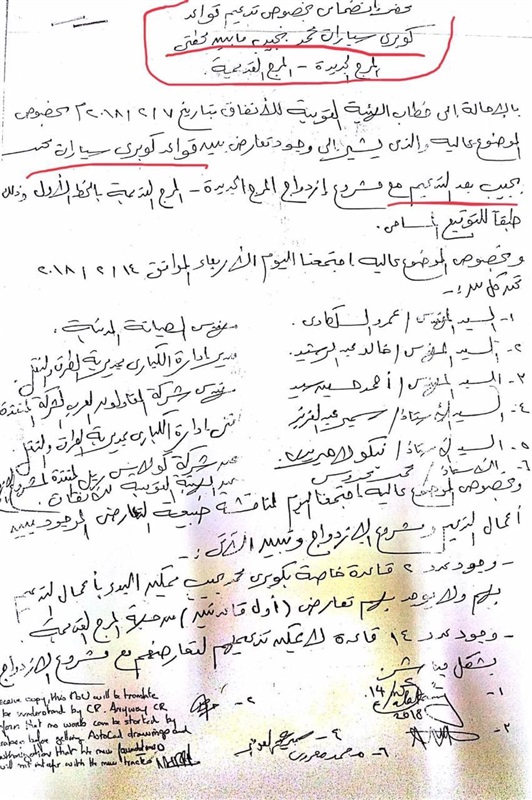 محضر انضمامى بخصوص تدعيم قواعد
كوبرى سيارات محمد نجيب ما بين محطتى
المرج الجديدة - المرج القديمة
بالاحالة الى خطاب الهيئة القومية للأنفاق بتاريخ ٢٠١٨/٢/٧ بخصوص
الموضوع عاليه والذى يشير الى وجود تعارض بين قواعد كوبرى سيارات محمد
نجيب بعد التدعيم مع مشروع ازدواج المرج الجديدة - المرج القديمة بالخط الأول وذلك
طبقا للتوقيع المساحى.
وبخصوص الموضوع عاليه اجتمعنا اليوم الأربعاء الموافق ٢٠١٨/٢/١٤
نحن كل من :-
١- السيد المهندس / عمرو السكادى. مهندس الصيانة المدنية.
٢- السيد المهندس / خالد عبد الرشيد. مدير ادارة الكبارى بمديرية الطرق والنقل
٣- السيد المهندس / أحمد حسين سيد مهندس شركة المقاولون العرب الشركة المنفذة
٤- السيد الأستاذ / سمير عبد العزيز فنى ادارة الكبارى بمديرية الطرق والنقل
٥- السيد الأستاذ / نيكولا عن شركة كولاس ريل المنفذة لمشروع
٦- الأستاذ / محمد عن الهيئة القومية للأنفاق
وبخصوص الموضوع عاليه اجتمعنا اليوم لمناقشة طبيعة التعارض الموجود بين
أعمال التدعيم ومشروع الازدواج وتبين الآتى :-
- وجود عدد ٢ قاعدة خاصة بكوبرى محمد نجيب ممكن البدء بأعمال التدعيم
بهم ولا يوجد بهم تعارض (أول قاعدتين) من محطة المرج القديمة
- وجود عدد ١٤ قاعدة لا يمكن تدعيمهم لتعارضهم مع مشروع الازدواج
بشكل مباشر
١-
١٤/٢
2018
٢-
٣-
٤- سمير عبد العزيز
٦- محمد
receive copy, this MoU will be translate
be understand by CR. Anyway CR
that no works can be started by
before getting AutoCad drawings and
that the new foundations
will not interfer with the new tracks